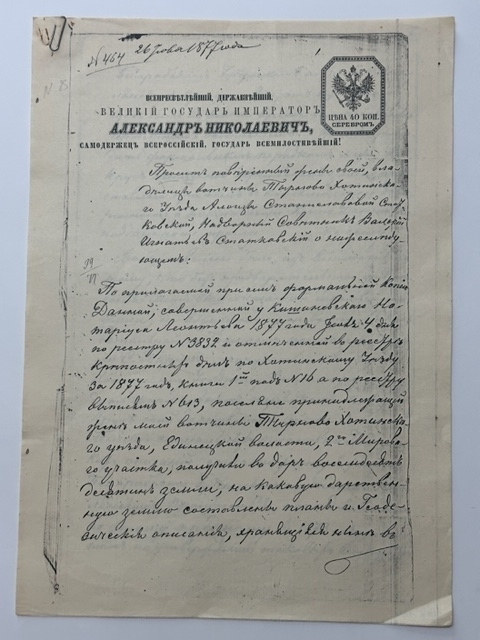 N 464 26 Юля 1877 года
ВСЕПРЕСВѢТЛѢЙШІЙ, ДЕРЖАВНѢЙШІЙ,
ВЕЛИКІЙ ГОСУДАРЬ ИМПЕРАТОРЪ
АЛЕКСАНДРЪ НИКОЛАЕВИЧЪ,
САМОДЕРЖЕЦЪ ВСЕРОССІЙСКІЙ, ГОСУДАРЬ ВСЕМИЛОСТИВѢЙШІЙ!
ЦѢНА 40 КОП.
СЕРЕБРОМЪ
Проситъ повѣренный жены своей, вла-
дѣлицы вотчины Тырново Хотинска-
го Уѣзда Станиславовой Стат-
ковской, Надворный Совѣтникъ Валерій
Игнатьевъ Статковскій о нижеслѣду-
ющемъ:
По прилагаемой при семъ форманной копіи
Данной, совершенной у Кишиневскаго Но-
таріуса Леонтьева 1877 года 4 дня
по реестру N 3832 и отмѣченной въ реестрѣ
крѣпостныхъ дѣлъ по Хотинскому Уѣзду
за 1877 годъ, книги 1й подъ N 16 а по реестру
N 613, поселяне принадлежащей
женѣ моей вотчины Тырново Хотинска-
го уѣзда, Единецкой волости, 2го Мирова-
го участка, получили въ даръ восемьдесятъ
десятинъ земли, на каковую дарствен-
ную землю составлены планъ и Геоде-
зическія описанія, хранящіяся нынѣ въ